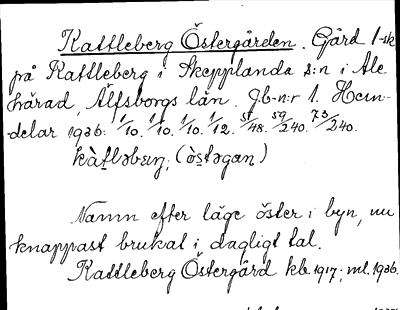 Kattleberg Östergården. Gård 1-sk
på Kattleberg i Skepplanda s:n i Ale
härad, Älfsborgs län. Jb-n:r 1. Hem-
delar 1936: 1/10. 1/10. 1/10. 1/12. 51/48. 59/240. 73/240.
kàt̯ləbærj, (òs̯təgan)
Namn efter läge öster i byn, nu
knappast brukat i dagligt tal.
Kattleberg Östergård kb 1917; ml. 1936.